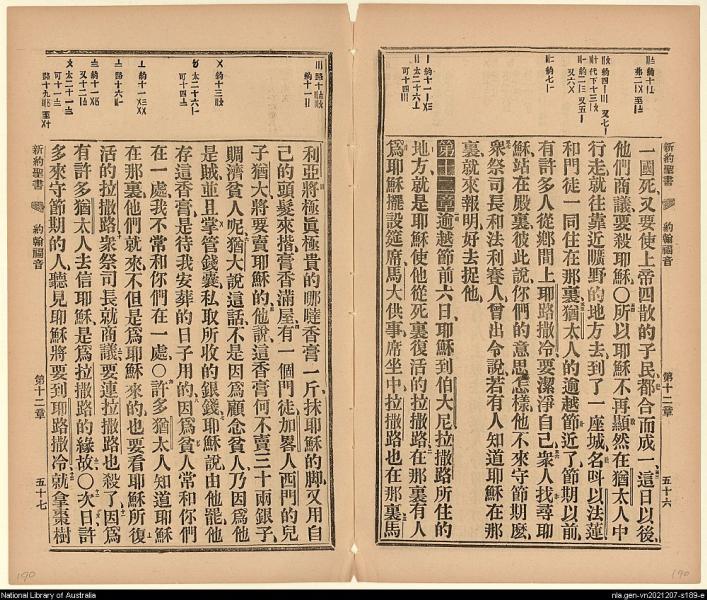 新約聖書
約翰福音
第十二章
五十六
一國死又要使上帝四散的子民都合而成一這日以後
他們商議要殺耶穌〇所以耶穌不再顯然在猶太人中
行走就往靠近曠野的地方去到了一座城名呌以法蓮
和門徒一同住在那裏猶太人的逾越節近了節期以前
有許多人從鄉間上耶路撒冷要潔淨自己衆人找尋耶
穌站在殿裏彼此說你們的意思怎樣他不來守節期麼
衆祭司長和法利賽人曾出令說若有人知道耶穌在那
裏就來報明好去捉他
第十二章逾越節前六日耶穌到伯大尼拉撒路所住的
地方就是耶穌使他從死裏復活的拉撒路在那裏有人
爲耶穌擺設筵席馬大供事席坐中拉撒路也在那裏馬
利亞將極眞極貴的哪噠香膏一斤抹耶穌的脚又用自
己的頭髮來揩膏香滿屋有一個門徒加畧人西門的兒
子猶大將要賣耶穌的他說這香膏何不賣三十兩銀子
賙濟貧人呢猶大說這話不是因爲顧念貧人乃因爲他
是賊並且掌管錢囊私取所收的銀錢耶穌說由他罷他
存這香膏是待我安葬的日子用的因爲貧人常和你們
在一處我不常和你們在一處〇許多猶太人知道耶穌
在那裏他們就來不但是爲耶穌來的也要看耶穌所復
活的拉撒路衆祭司長就商議要連拉撒路也殺了因爲
有許多猶太人去信耶穌是爲拉撒路的緣故〇次日許
多來守節期的人聽見耶穌將要到耶路撒冷就拿棗樹
新約聖書
約翰福音
第十二章
五十七
190
190
National Library of Australia
nla.gen-vn2021207-s189-e